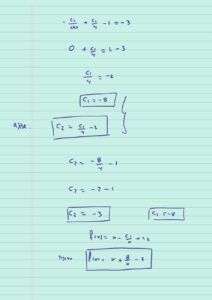 - C₁/∞ + C₁/4 - 1 = -3
0 + C₁/4 = 2 - 3
C₁/4 = -2
C₁ = -8
C₂ = C₁/4 - 2
C₂ = -8/4 - 1
C₂ = -2 - 1
C₂ = -3 C₁ = -8
f(x) = x - C₁/x + C₂
f(x) = x + 8/x - 3